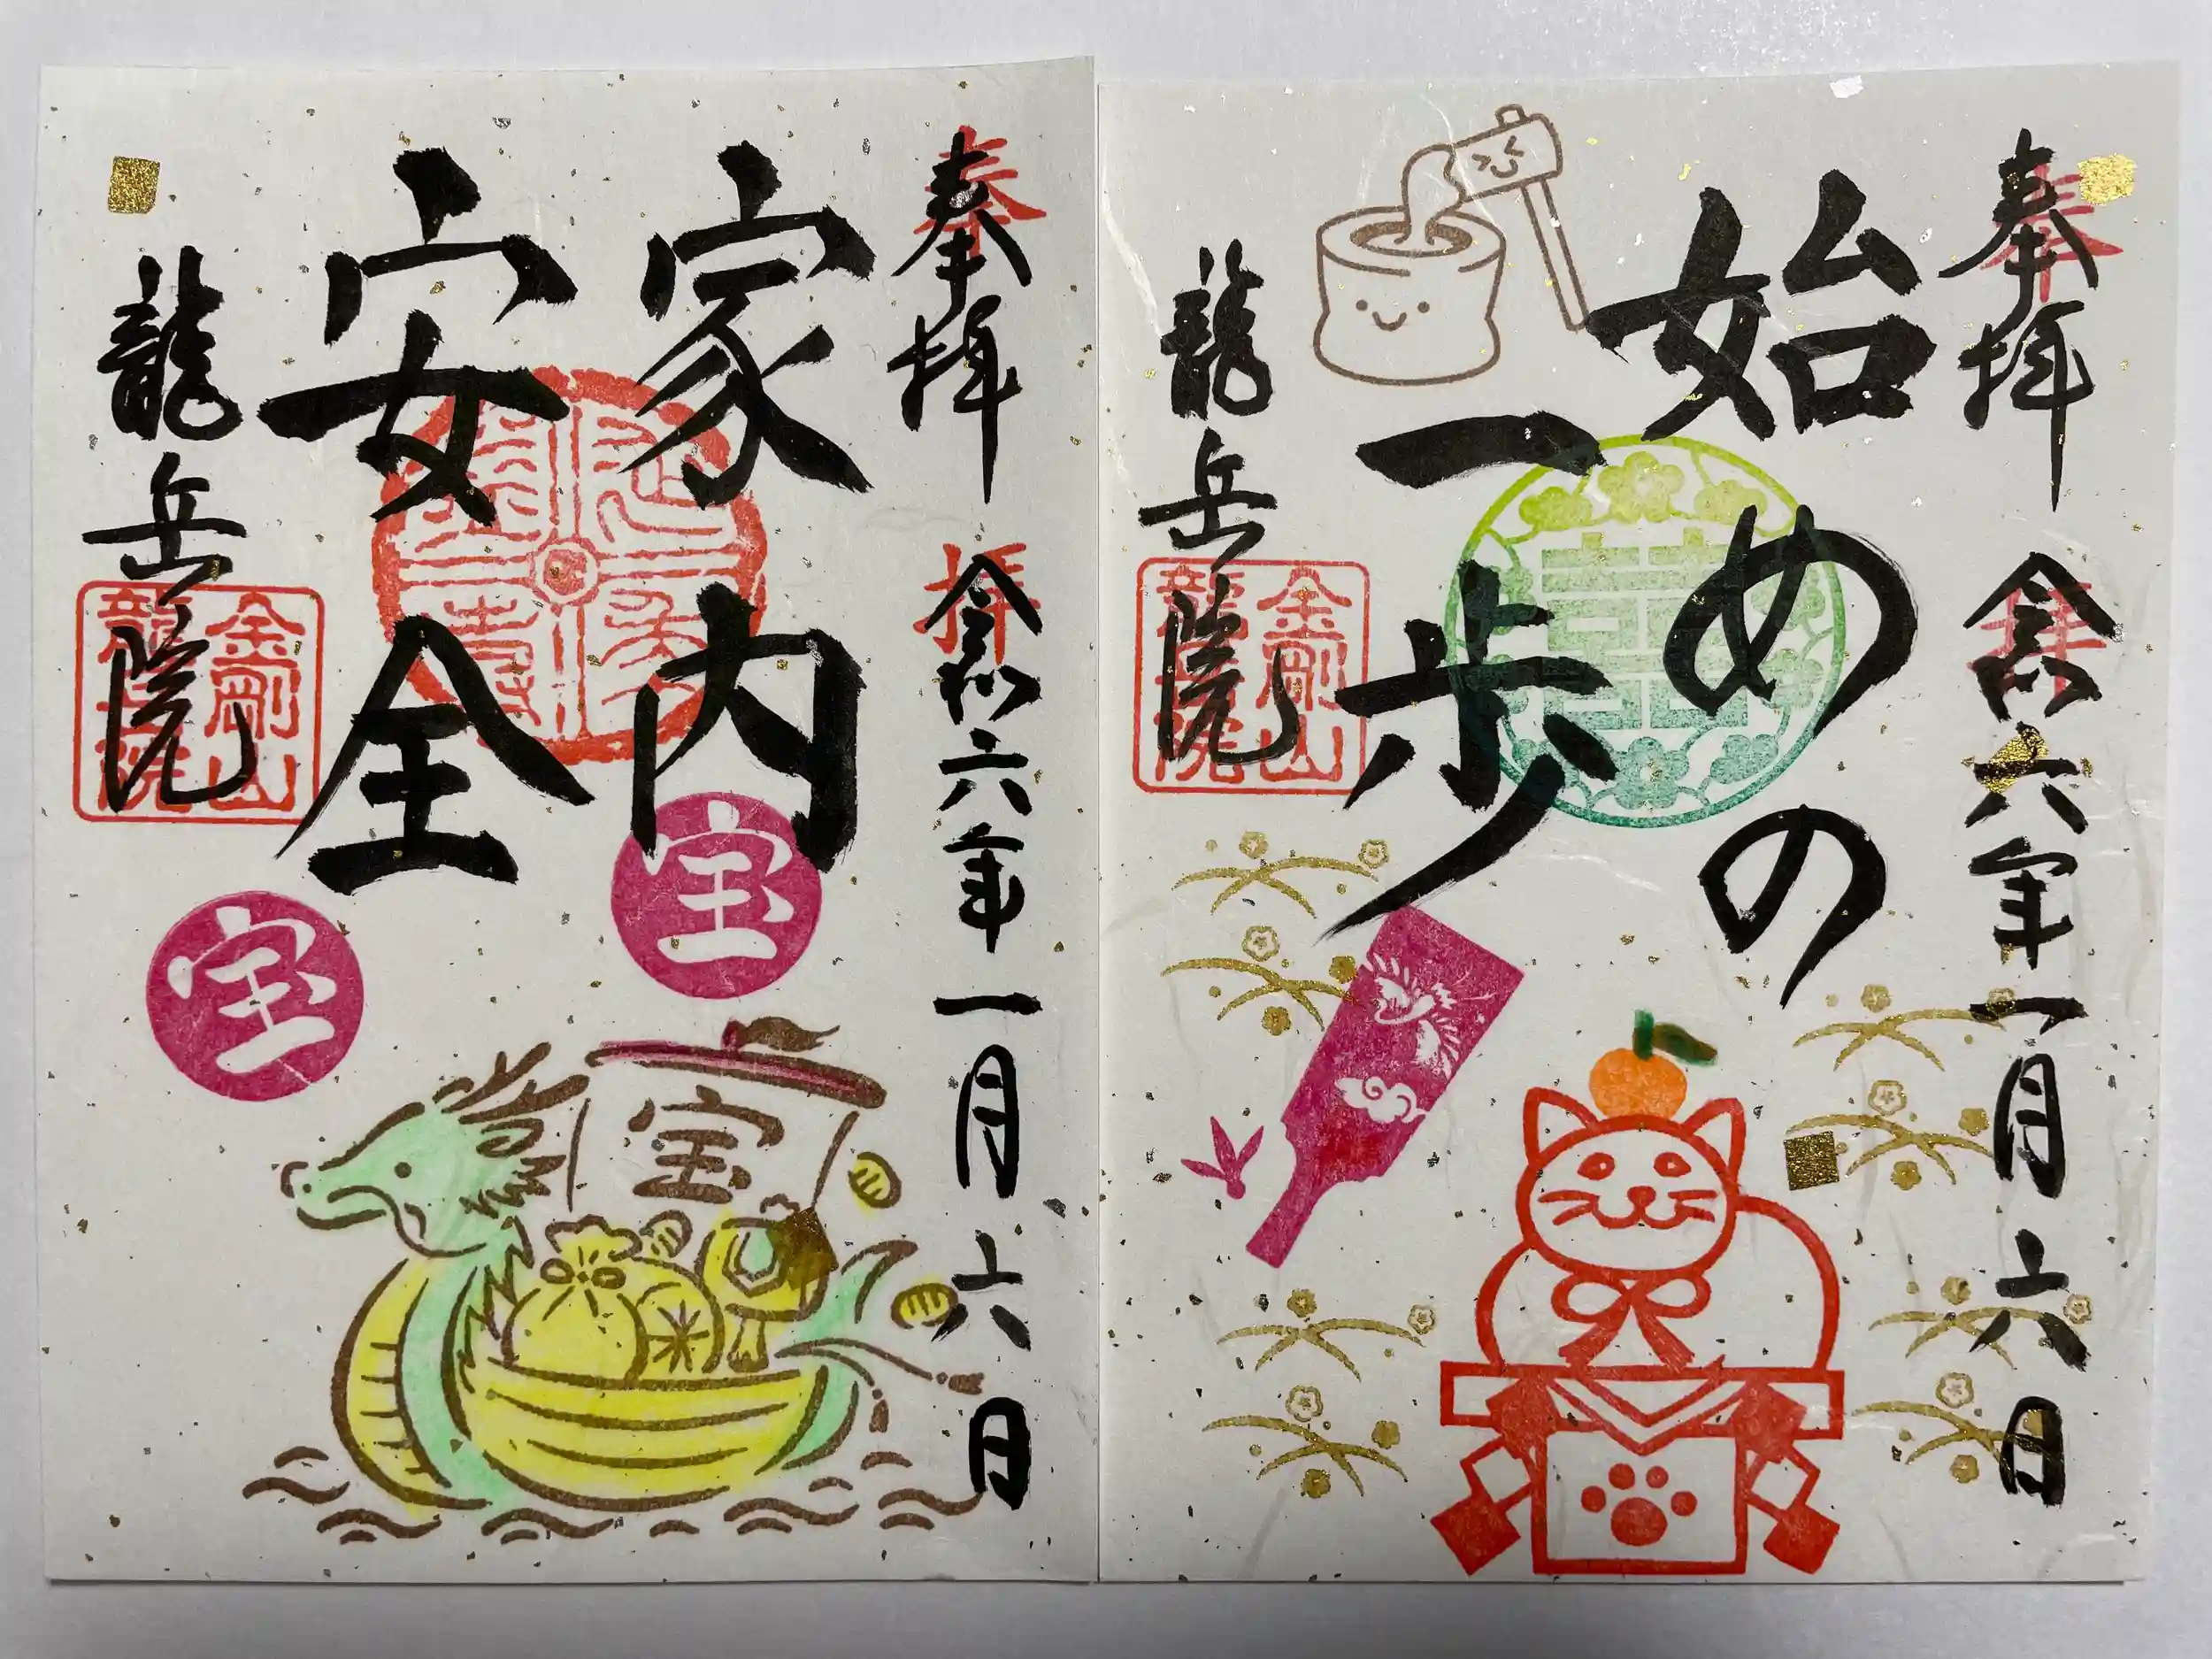 奉拝
令和六年一月六日
始めの
一歩
龍岳院
金剛山
龍岳院
奉拝
令和六年一月六日
家内
安全
龍岳院
金剛山
龍岳院
宝
宝
宝